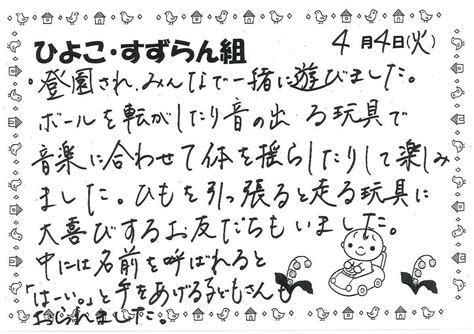 ひよこ・すずらん組
4月4日(火)
・登園され、みんなで一緒に遊びました。
ボールを転がしたり音の出る玩具で
音楽に合わせて体を揺らしたりして楽しみ
ました。ひもを引っ張ると走る玩具に
大喜びするお友だちもいました。
中には名前を呼ばれると
「はーい。」と手をあげる子どもさんも
おられました。